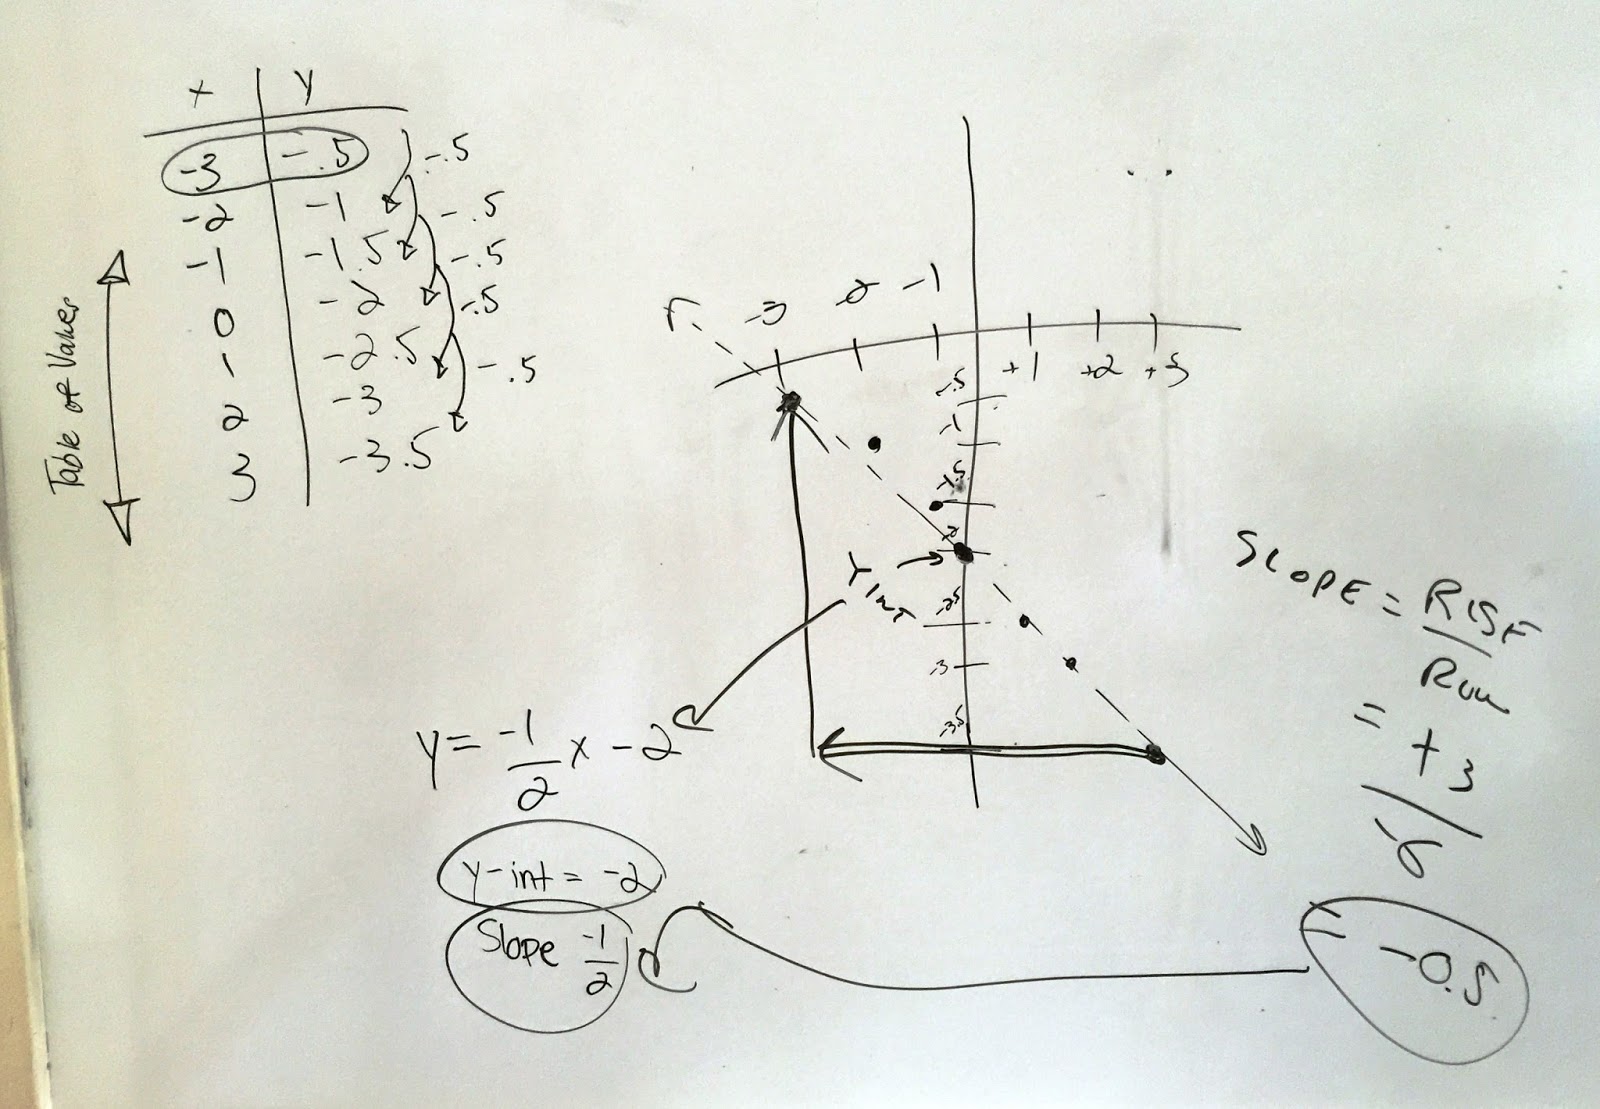 x y
-3 -.5
-2 -1
-1 -1.5
0 -2
1 -2.5
2 -3
3 -3.5
-.5
-.5
-.5
-.5
-.5
Table of Values
-3 -2 -1
+1 +2 +3
-.5
-1
-1.5
-2
-2.5
-3
-3.5
Y int
y = -1/2 x - 2
y-int = -2
Slope -1/2
SLOPE = RISE
Run
= +3
/-6
= -0.5